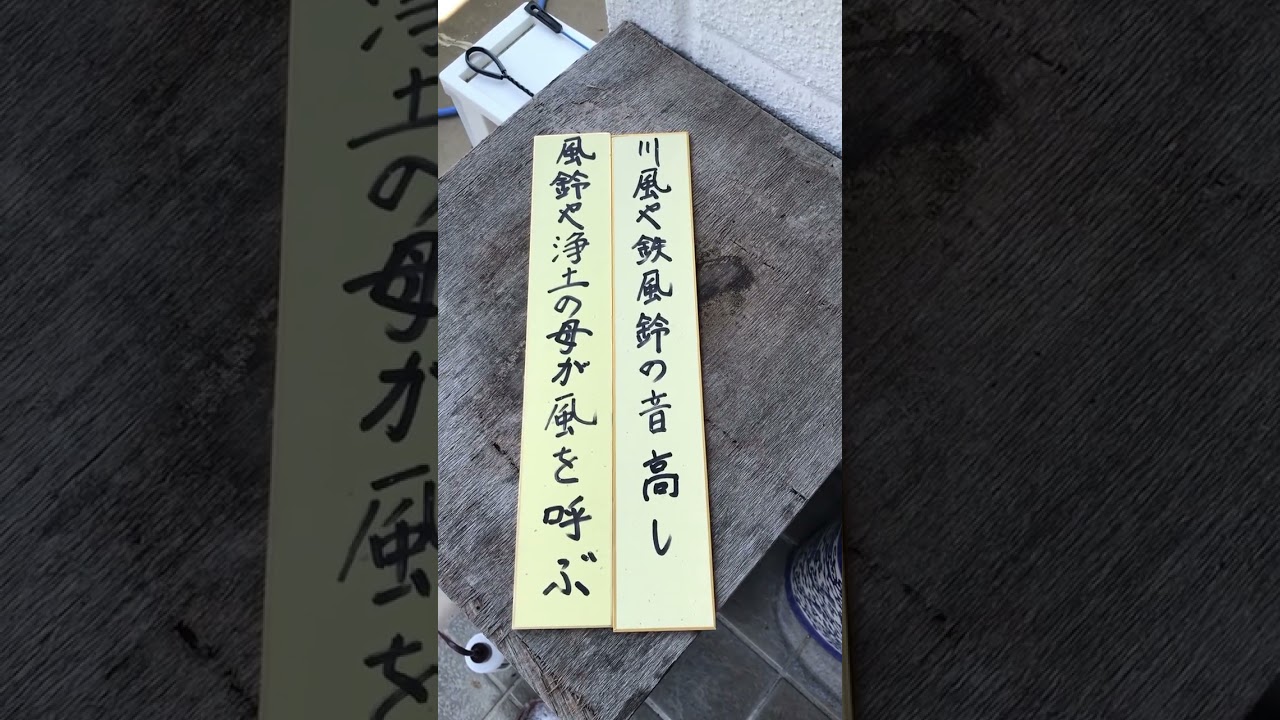 川風や鉄風鈴の音高し
風鈴や浄土の母が風を呼ぶ